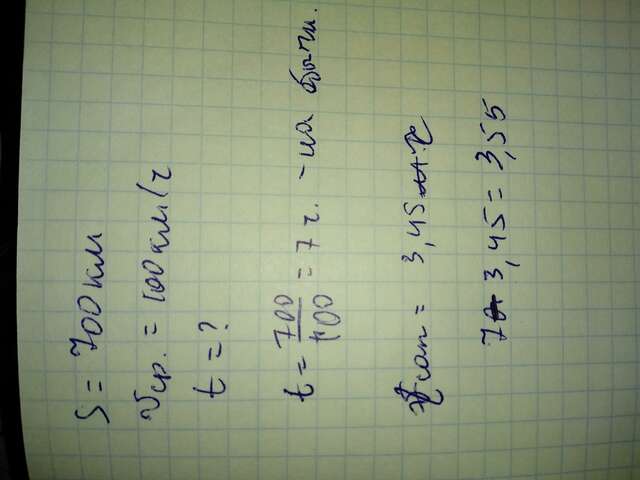 S = 700 км
Vср. = 100 км/ч
t = ?
t = 700/100 = 7 ч. - на
tсам = 3,45
7 - 3,45 = 3,55